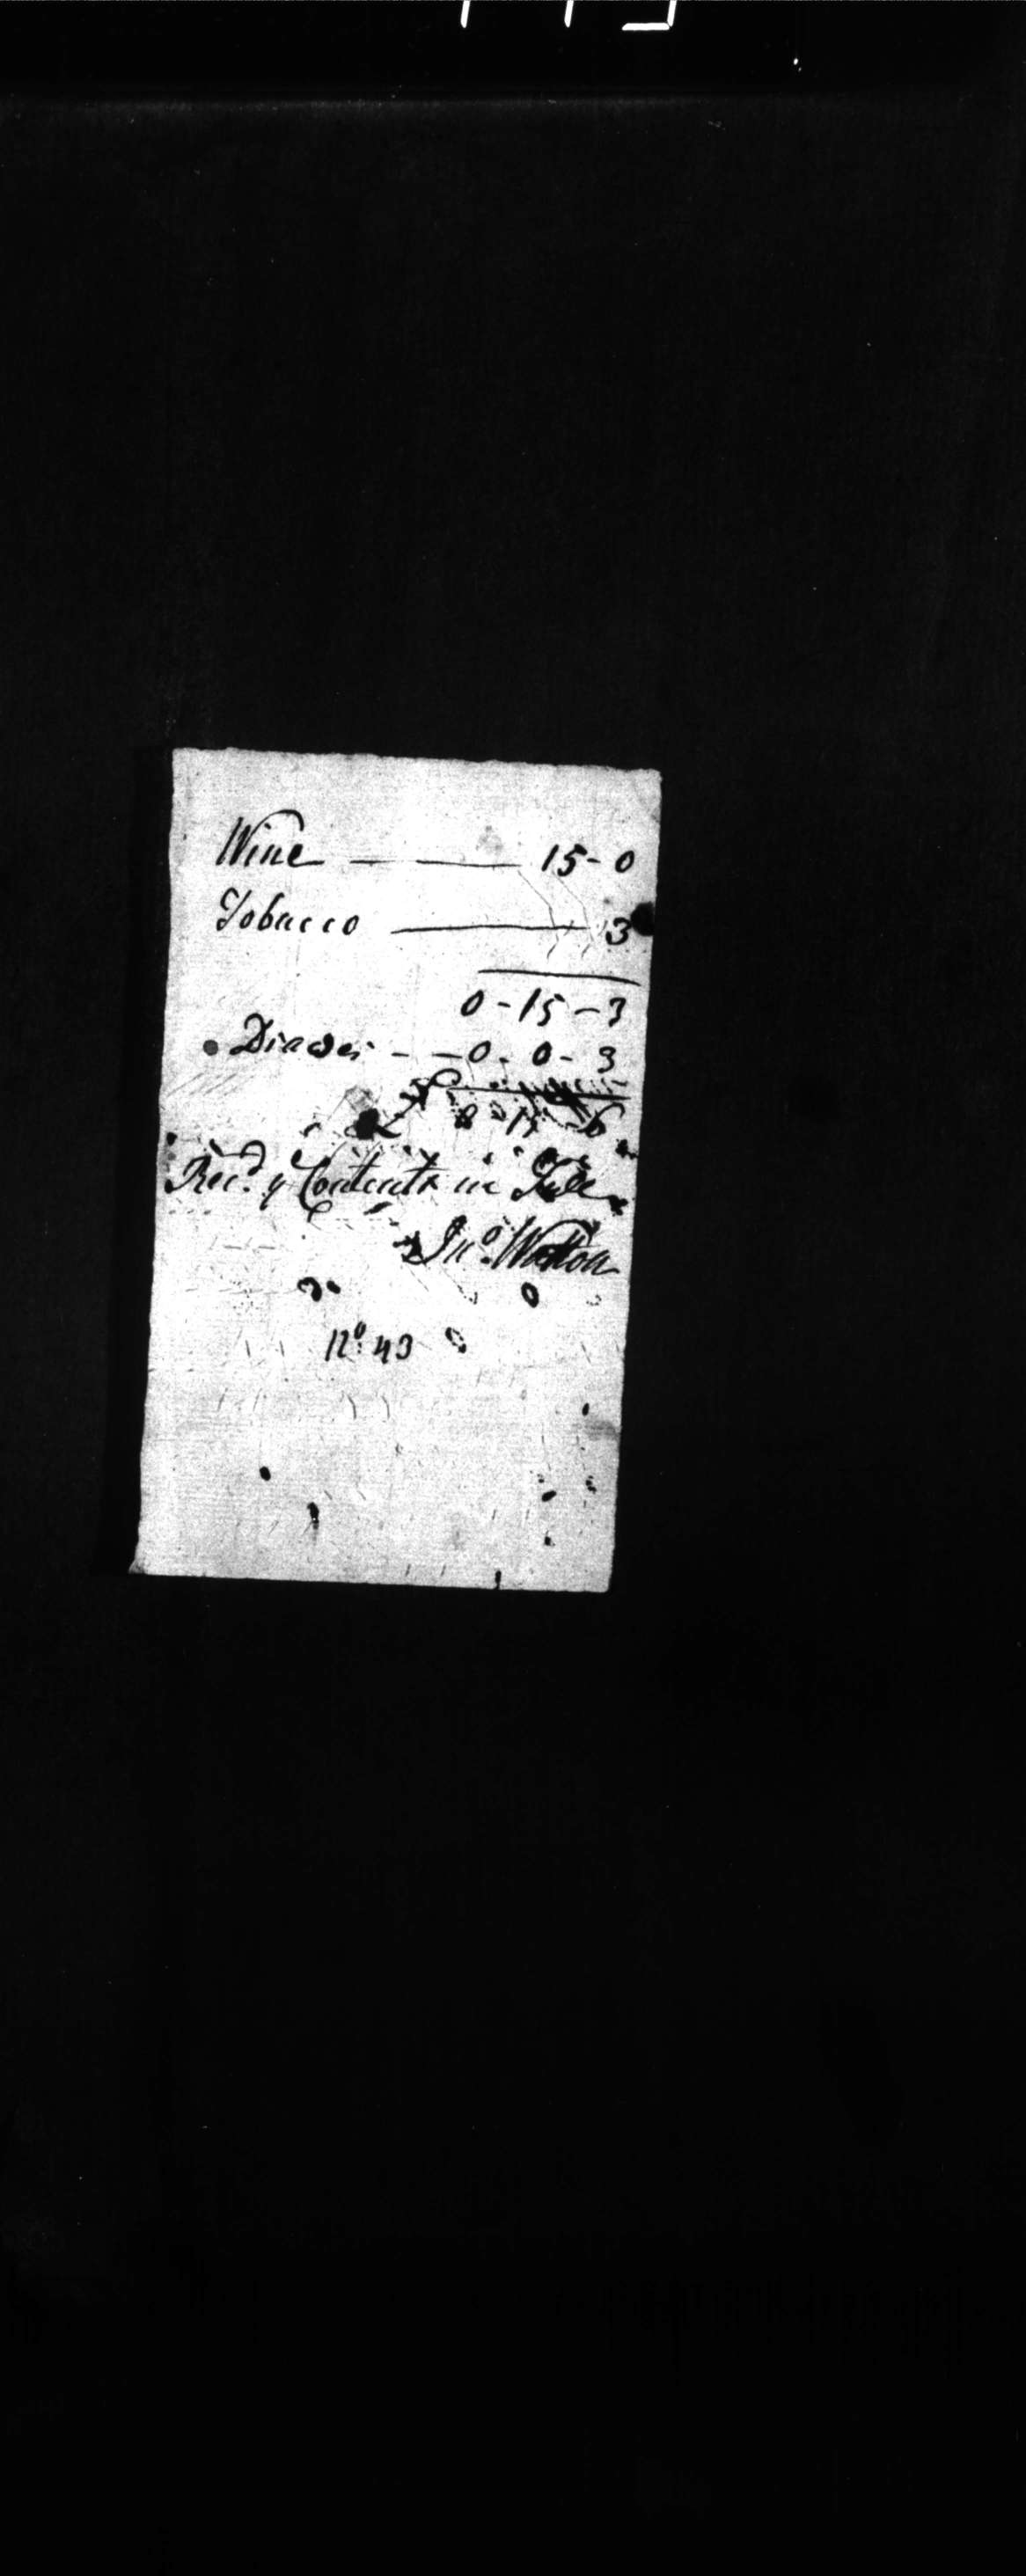 Wine — — 15 - 0
Tobacco — 3
0 - 15 - 3
- - 0 - 0 - 3
£ 0 - 15 - 6
Rec.d ye Contents in Full
Jn.o Walton
No. 43